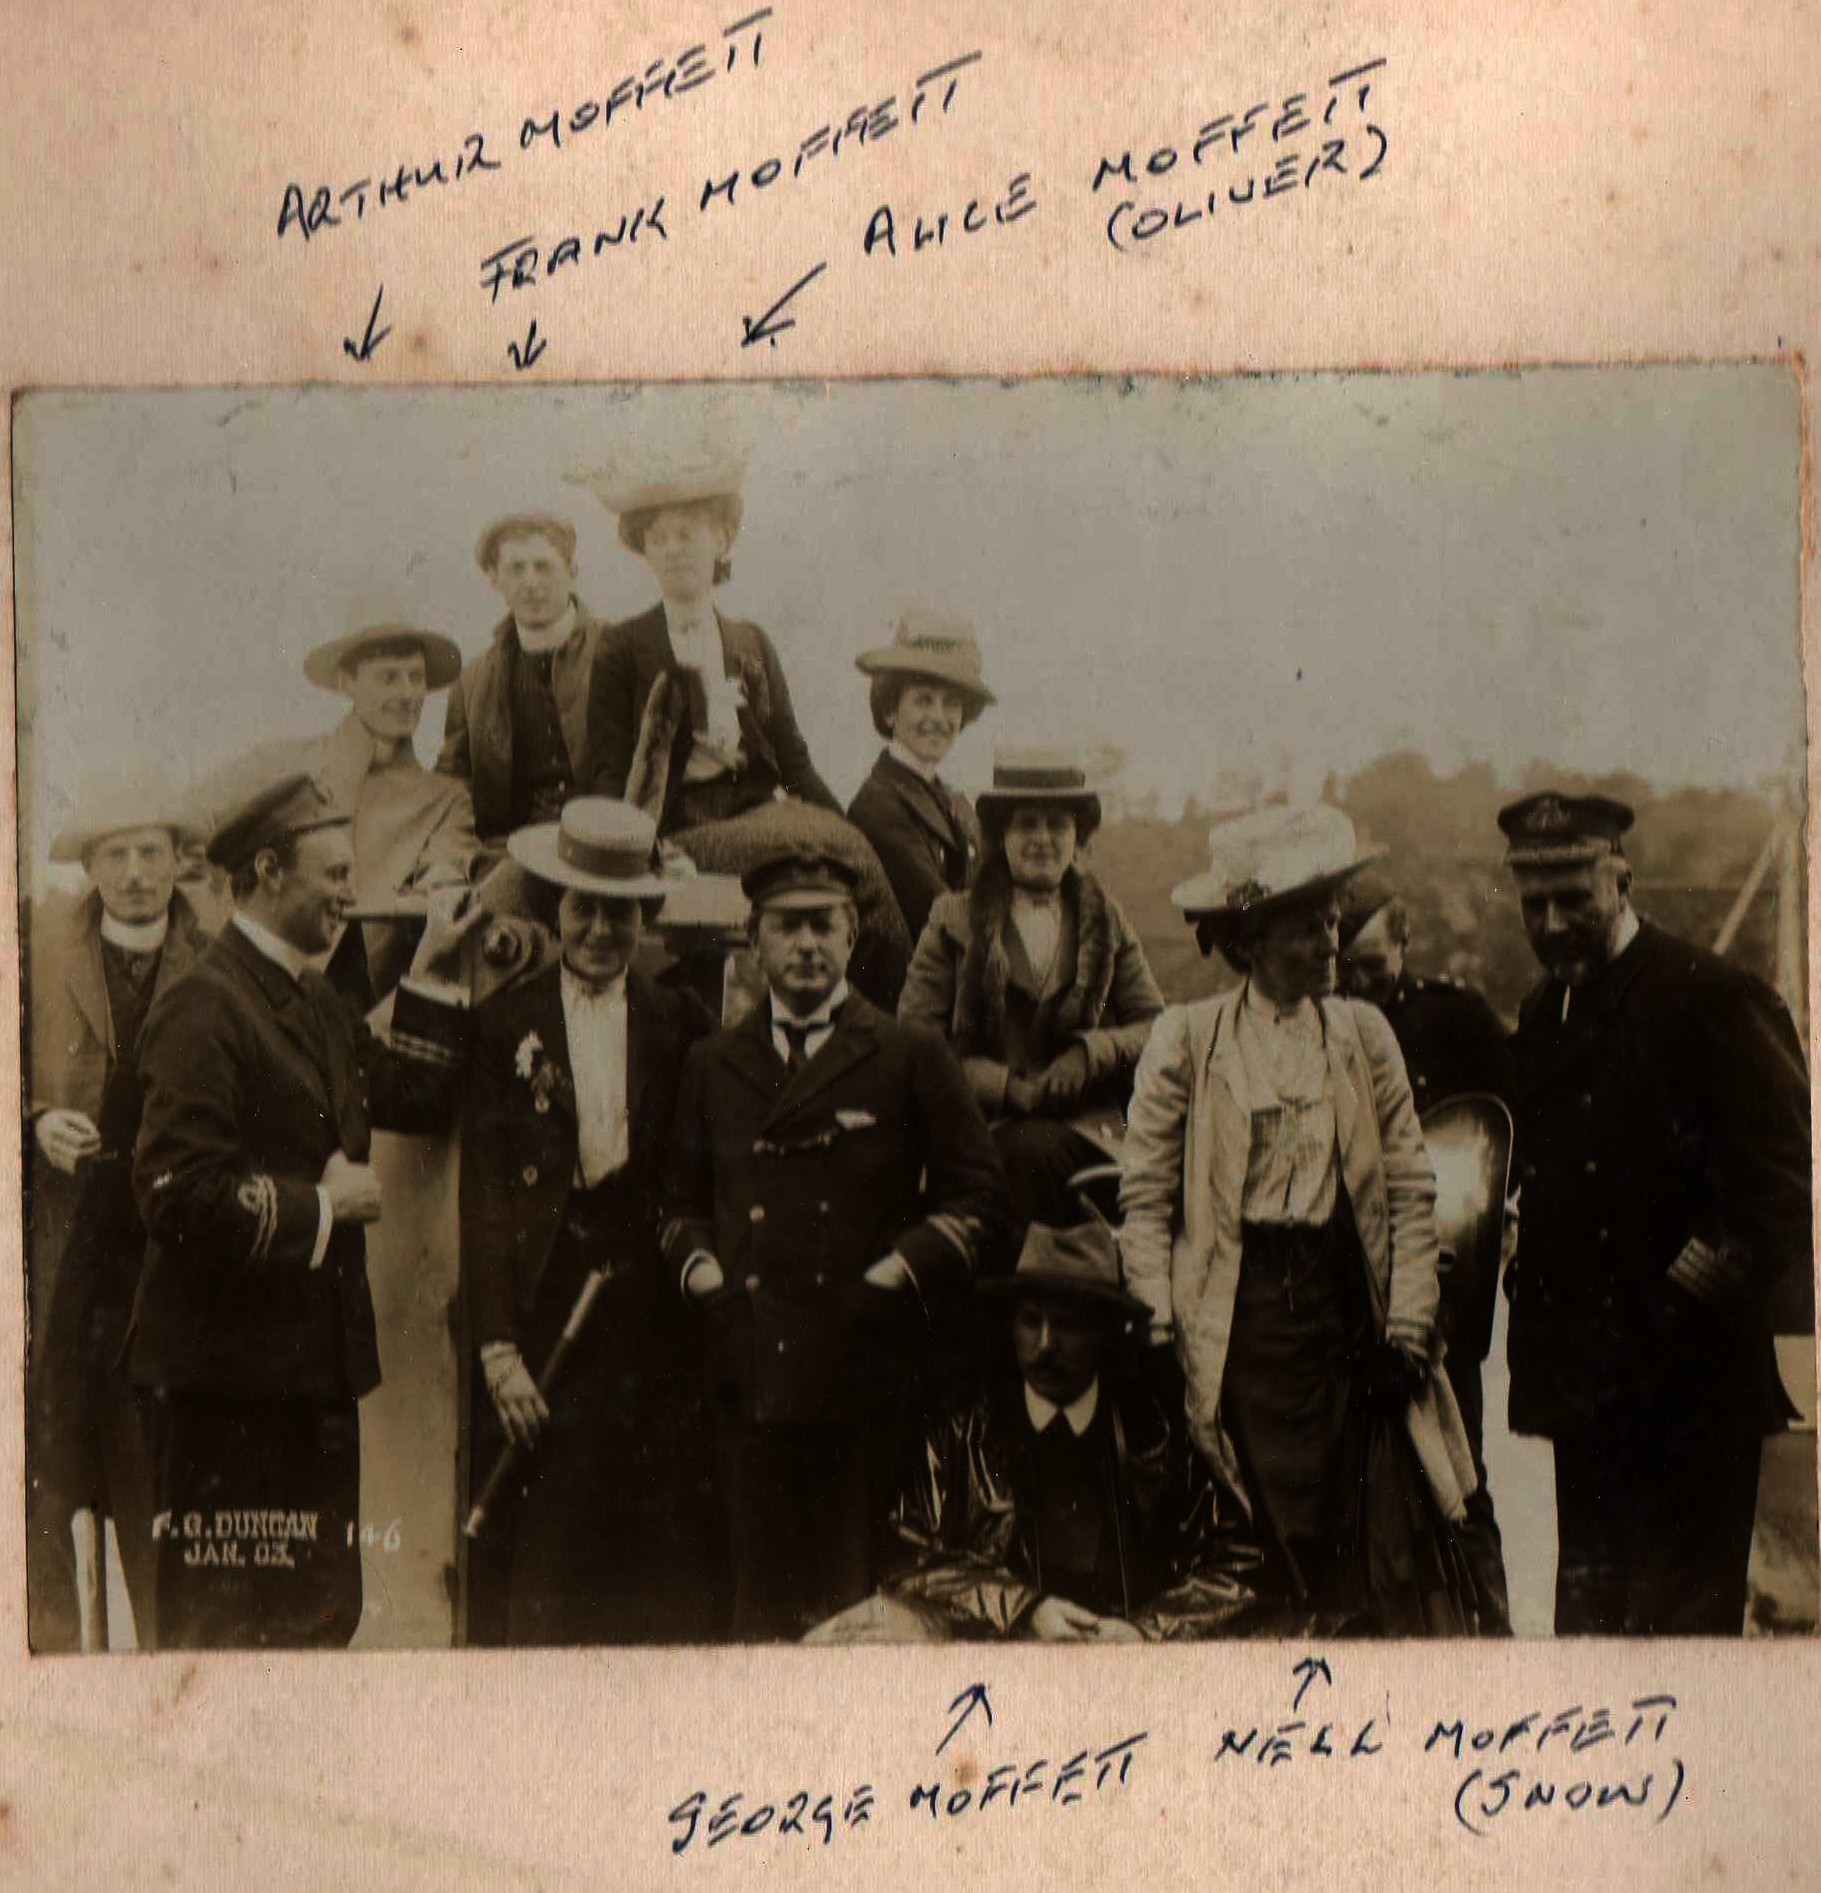 ARTHUR MOFFETT
FRANK MOFFETT
ALICE MOFFETT
(OLIVER)
F. G. DUNCAN 146
JAN. 03.
GEORGE MOFFETT
NELL MOFFETT
(SNOW)